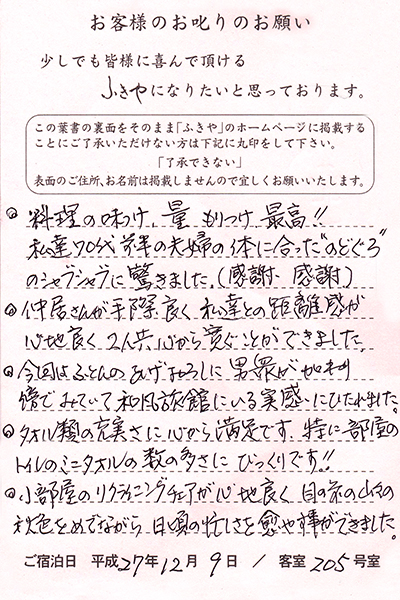 お客様のお叱りのお願い
少しでも皆様に喜んで頂ける
ふきやになりたいと思っております。
この葉書の裏面をそのまま「ふきや」のホームページに掲載する
ことにご了承いただけない方は下記に丸印をして下さい。
「了承できない」
表面のご住所、お名前は掲載しませんので宜しくお願いいたします。
料理の味つけ、量 もりつけ 最高!!
私達70代前半の夫婦の体に合った"のどぐろ"
のシャブシャブに驚きました。(感謝 感謝)
仲居さんが手際良く 私達との距離感が
心地良く 2人共心から寛ぐことができました。
今回はふとんのあげおろしに男衆が加わり
傍でみていて和風旅館にいる実感にひたれました。
タオル類の充実さに心から満足です。特に部屋の
トイレのミニタオルの数の多さに びっくりです!!
小部屋のリクライニングチェアが心地良く 目の前の山々の
秋色をめでながら 日頃の忙しさを愈やす事ができました。
ご宿泊日 平成27年12月9日 / 客室205号室